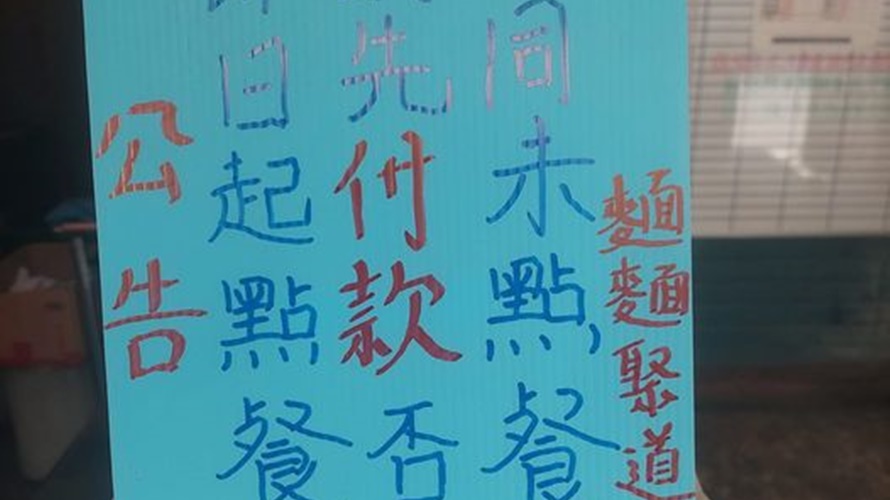 公告
日起點餐
先付款否
同未點餐
麵麵聚道